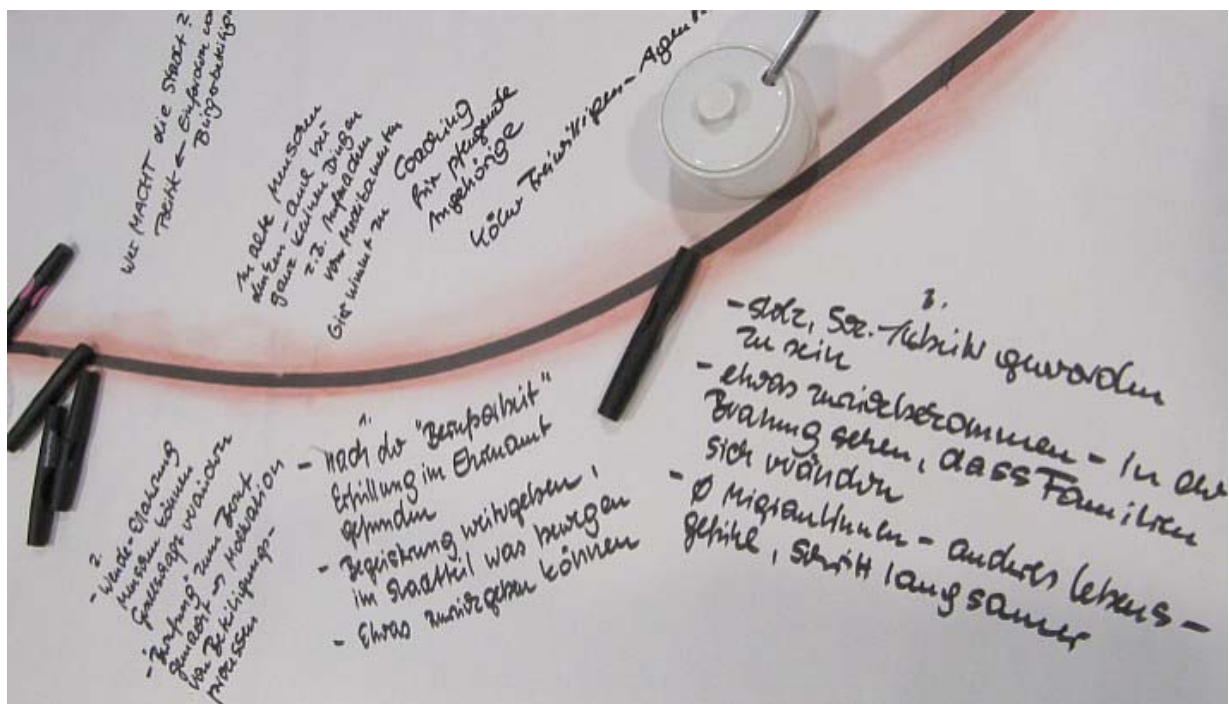 Wer MACHT die Stadt?
Politik ← Einfordern von
Bürgerbeteiligung
In alte Menschen
denken – auch bei
ganz kleinen Dingen
z.B. Aufmachen
von Medikamenten
Gier nimmt zu
Coaching
für pflegende
Angehörige
Kölner Freiwilligen – Agentur
2.
- Wende-Erfahrung
Menschen können
Gesellschaft verändern
- "Berufung" zum Beruf
gemacht → Moderation
von Beteiligungs-
prozessen
1.
- nach der "Berufsarbeit"
Erfüllung im Ehrenamt
gefunden
- Begeisterung weitergeben,
im Stadtteil was bewegen
- Etwas zurückgeben können
3.
- stolz, Soz.-Arbeit geworden
zu sein
- etwas zurückbekommen – In der
Beratung sehen, dass Familien
sich verändern
- Ø MigrantInnen – anderes Lebens-
gefühl, Schritt langsamer